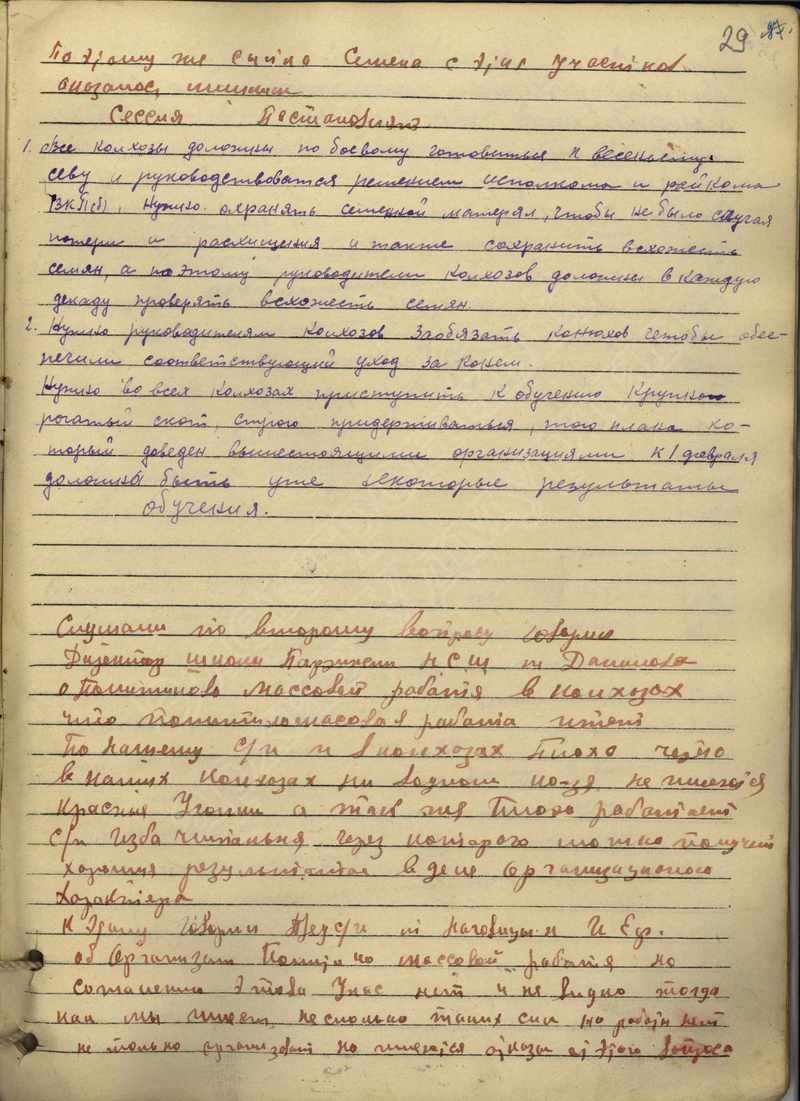 29
По этому же сыпка Семена с этих участков
оказалось
Сессия Постановляет
1. Все колхозы должны по боевому готовиться к весеньему
севу и руководствоватся решением исполкома и райкома
ВКП(б), Нужно охранять семеной матерял, чтобы не было случая
потери и расхищения и также сохранить всхожесть
семян, а поэтому руководители колхозов должны в каждую
декаду проверять всхожесть семян.
2. Нужно руководителям колхозов заобязать конюхов чтобы обес-
печили соответствующий уход за конем.
Нужно во всех колхозах приступить к обучению Крупно
рогатый скот, строго придерживаться, того плана ко-
торый доведен вышестоящими организациями к 1 февраля
должна быть уже некоторые результаты
обучения.
Слушали по второму вопросу говорил
Директор школы НСШ т Данилова
о Политиково массовой работя в колхозах
что политикомасовая работа
по нашему с/с и в колхозах Плохо
в наших колхозах ни водном к-зе не имеется
Красныя Уголки а так же Плохо работает
с/с изба читальня через которого можно получит
хорошия результаты в деле организационого
характера
К этому говорил Пред с/с т И Еф.
об Организаци массовой работя но
сожалению этова Унас нет и не видно тогда
как мы имеем несколько таких сил но работы нет
не только организоват но имеется отказы от этого вопроса